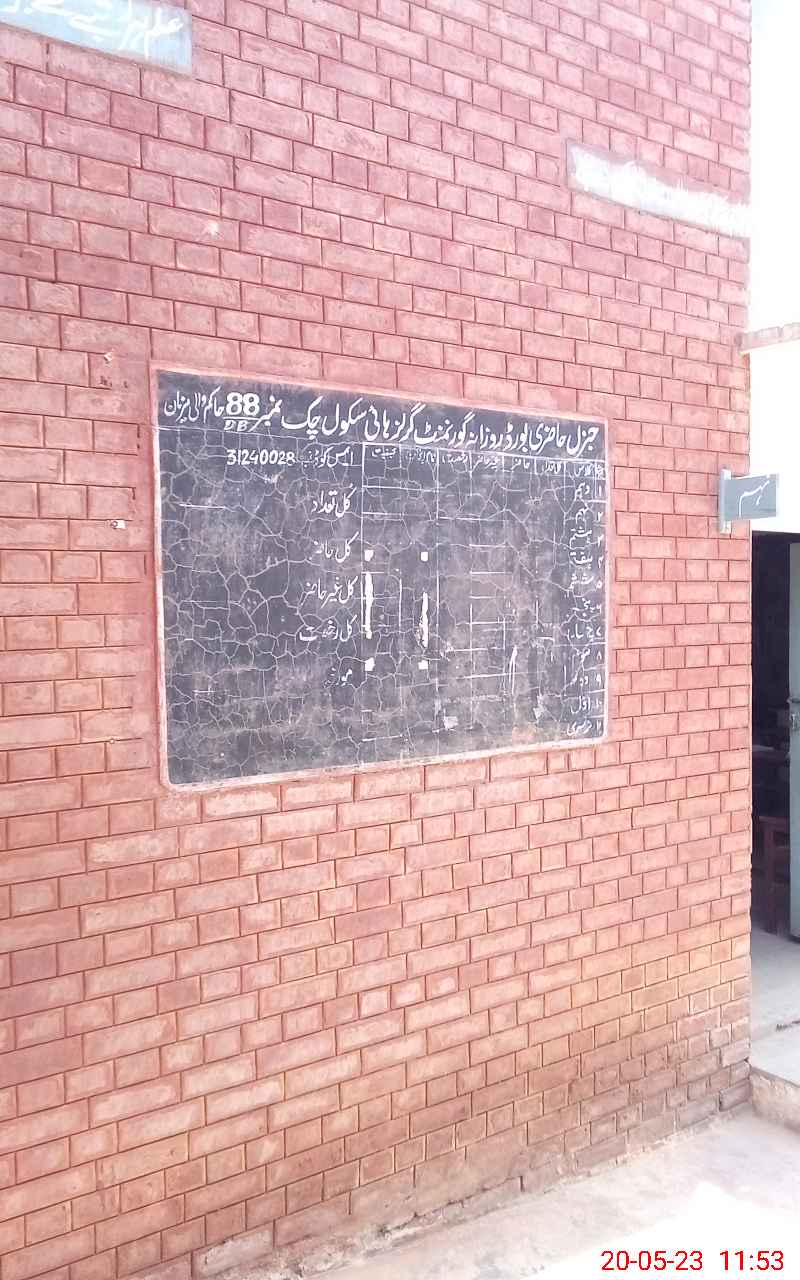 جنرل حاضری بورڈ روزانہ گورنمنٹ گرلز ہائی سکول چک نمبر 88 DB حاکم والی یزمان
نمبر کلاس کل تعداد حاضر غیر حاضر رخصت نام کیفیت
ایمس کوڈ نمبر 31240028
کل تعداد
کل حاضر
کل غیر حاضر
کل رخصت
مورخہ
۱ دہم
۲ نہم
۳ ہشتم
۴ ہفتم
۵ ششم
۶ پنجم
۷ چہارم
۸ سوم
۹ دوم
۱۰ اول
نرسری
نہم
20-05-23 11:53